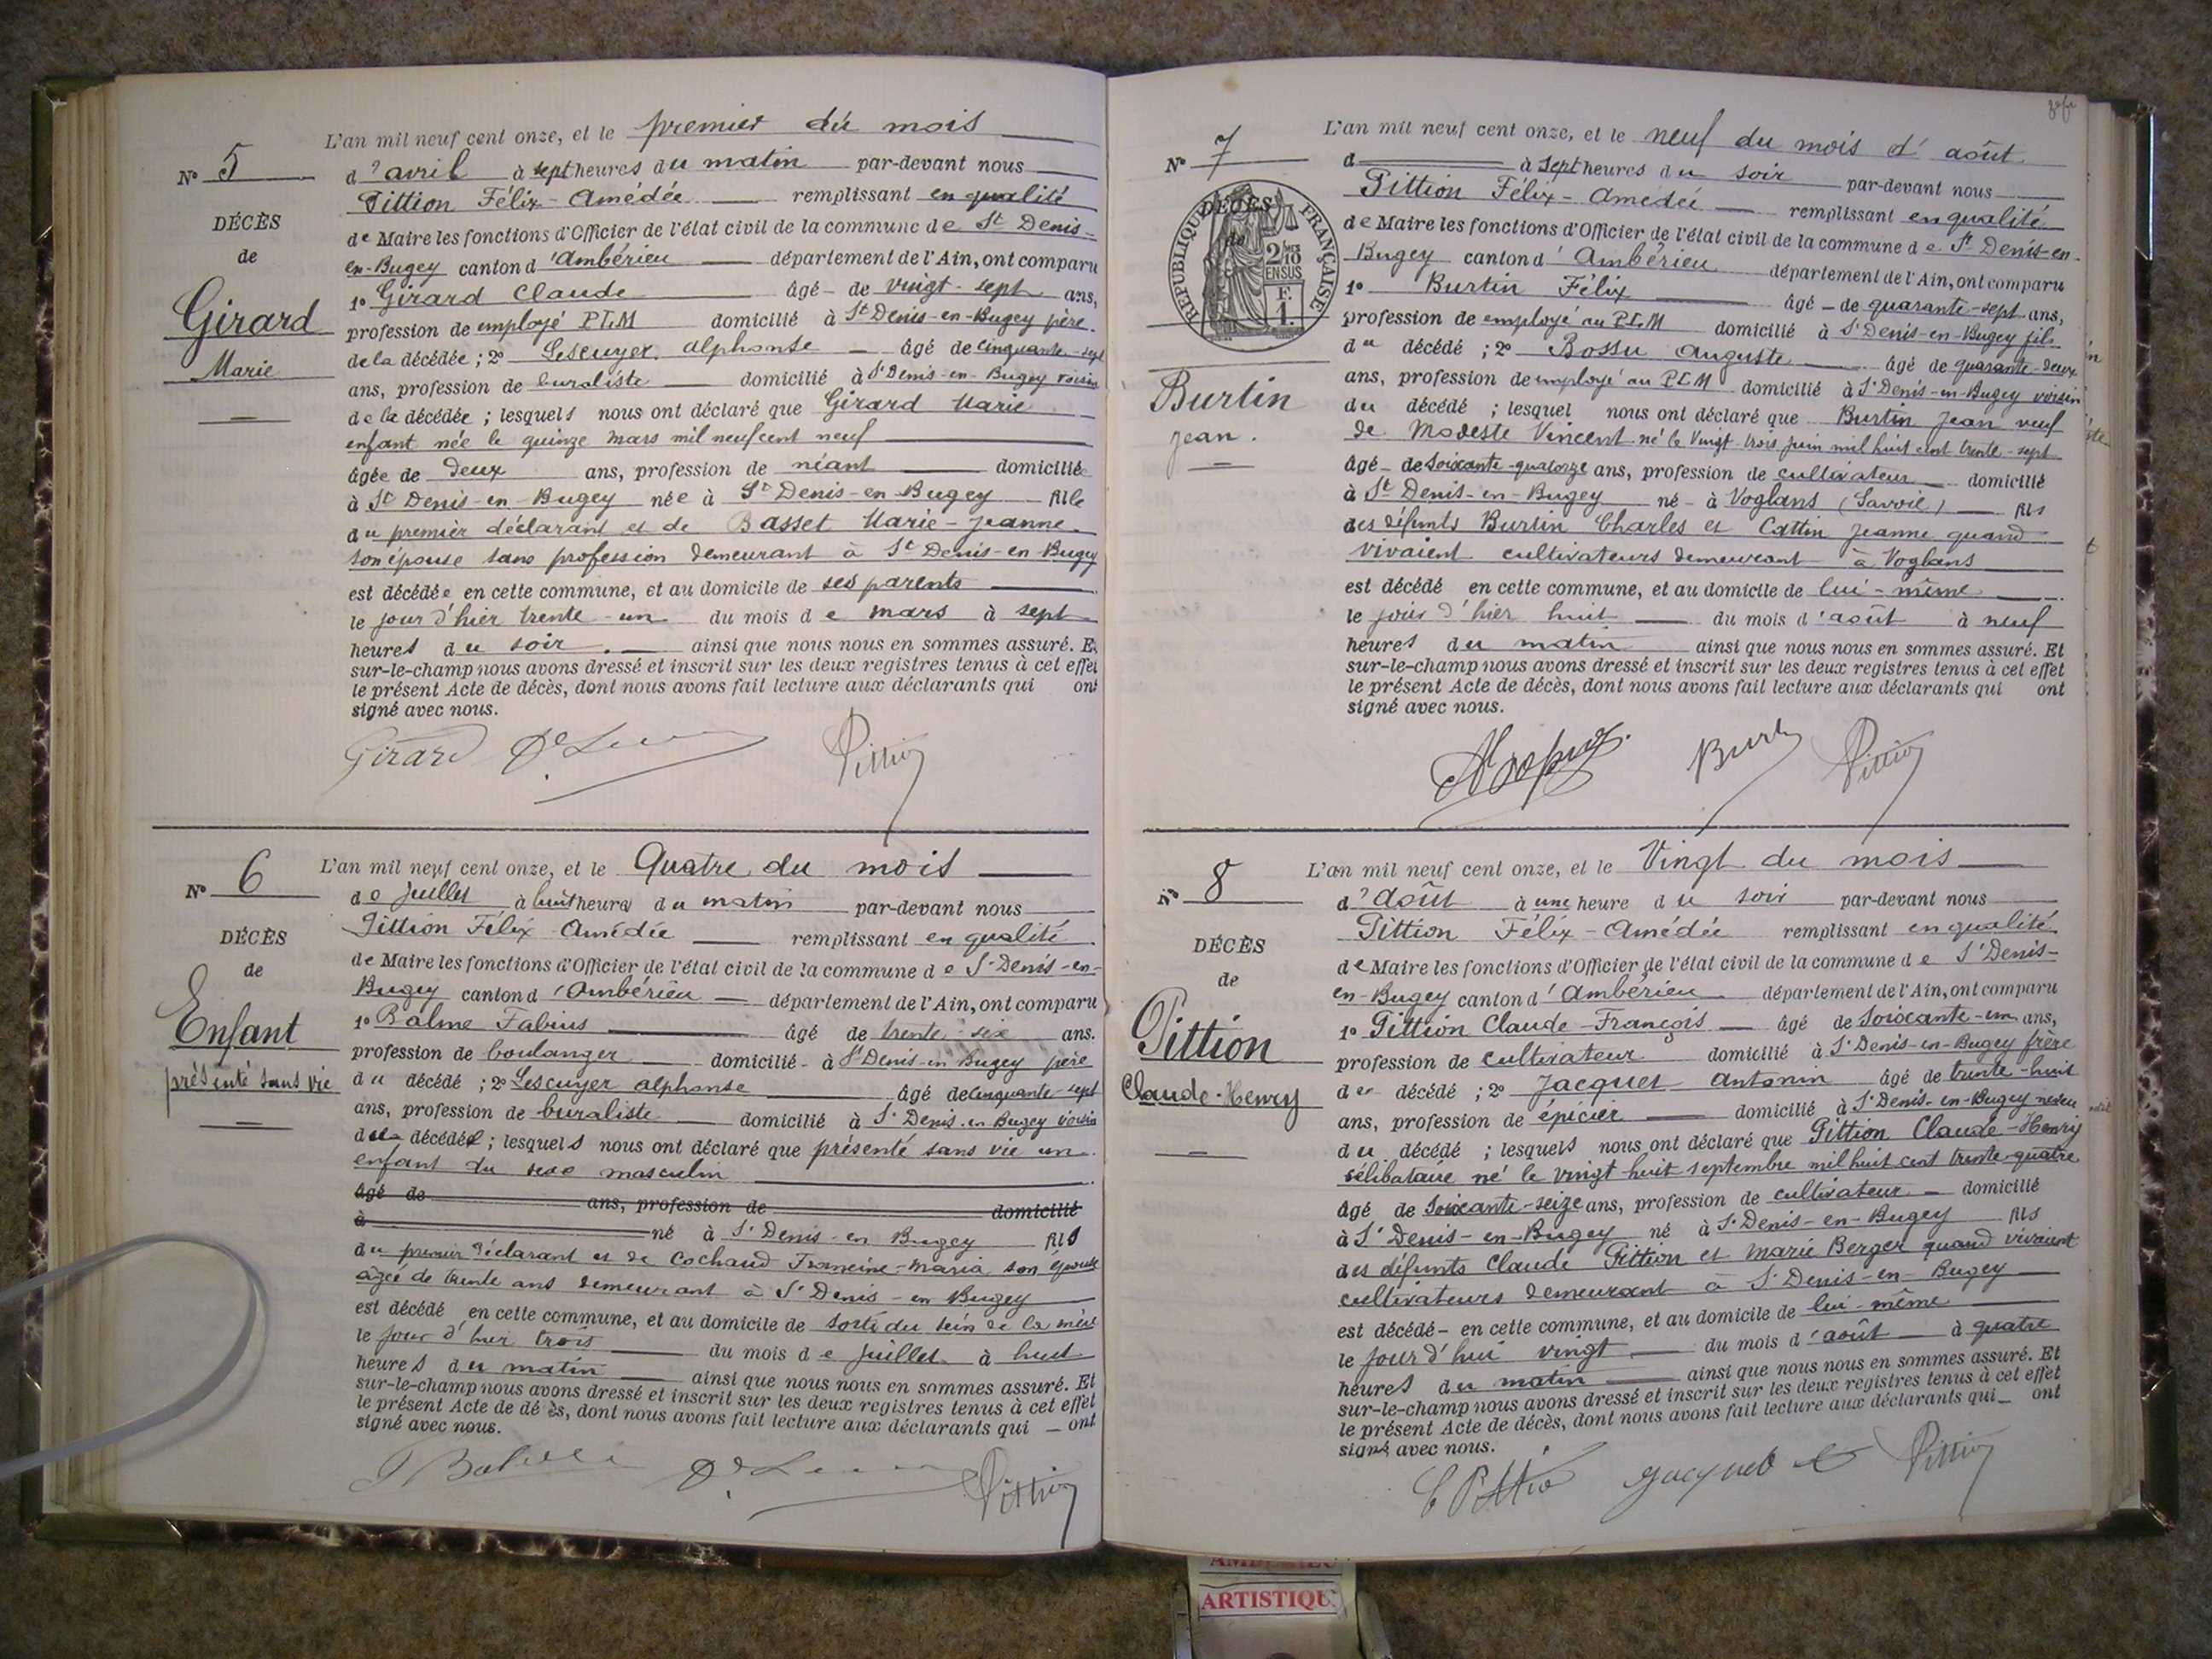 L'an mil neuf cent onze, et le premier du mois
N° 5
d'avril à sept heures du matin par-devant nous
Pittion Félix-Amédée remplissant en qualité
DÉCÈS
de Maire les fonctions d'Officier de l'état civil de la commune de St Denis-
de
en-Bugey canton d'Ambérieu département de l'Ain, ont comparu
Girard
1° Girard Claude âgé de vingt-sept ans,
profession de employé PLM domicilié à St Denis-en-Bugey père
Marie
de la décédée ; 2° Lescuyer alphonse âgé de cinquante-sept
ans, profession de buraliste domicilié à St Denis-en-Bugey voisin
de la décédée ; lesquels nous ont déclaré que Girard Marie
enfant née le quinze mars mil neuf cent neuf
âgée de deux ans, profession de néant domiciliée
à St Denis-en-Bugey née à St Denis-en-Bugey fille
du premier déclarant et de Basset Marie-Jeanne
son épouse sans profession demeurant à St Denis-en-Bugey
est décédée en cette commune, et au domicile de ses parents
le jour d'hier trente-un du mois de mars à sept
heures du soir. ainsi que nous nous en sommes assuré. Et
sur-le-champ nous avons dressé et inscrit sur les deux registres tenus à cet effet
le présent Acte de décès, dont nous avons fait lecture aux déclarants qui ont
signé avec nous.
Girard Pittion
L'an mil neuf cent onze, et le Quatre du mois
N° 6
de Juillet à huit heures du matin par-devant nous
Pittion Félix-Amédée remplissant en qualité
DÉCÈS
de Maire les fonctions d'Officier de l'état civil de la commune de St Denis-en-
de
Bugey canton d'Ambérieu département de l'Ain, ont comparu
Enfant
1° Balme Fabius âgé de trente-six ans.
profession de boulanger domicilié à St Denis-en-Bugey père
présenté sans vie
du décédé ; 2° Lescuyer alphonse âgé de cinquante-sept
ans, profession de buraliste domicilié à St Denis-en-Bugey voisin
décédé ; lesquels nous ont déclaré que présenté sans vie un
enfant du sexe masculin
âgé de ans, profession de domicilié
à né à St Denis-en Bugey fils
du premier déclarant et de Cochaud Francine-Maria son épouse
âgée de trente ans demeurant à St Denis-en Bugey
est décédé en cette commune, et au domicile de sorti du sein de la mère
le jour d'hier trois du mois de juillet à huit
heures du matin ainsi que nous nous en sommes assuré. Et
sur-le-champ nous avons dressé et inscrit sur les deux registres tenus à cet effet
le présent Acte de décès, dont nous avons fait lecture aux déclarants qui ont
signé avec nous.
Pittion
L'an mil neuf cent onze, et le neuf du mois d'août
N° 7
d à sept heures du soir par-devant nous
DÉCÈS
de
RÉPUBLIQUE FRANÇAISE
2/10 EN SUS
F. 1.
Pittion Félix-Amédée remplissant en qualité
de Maire les fonctions d'Officier de l'état civil de la commune de St Denis-en-
Bugey canton d'Ambérieu département de l'Ain, ont comparu
1° Burtin Félix âgé de quarante-sept ans,
profession de employé au PLM domicilié à St Denis-en-Bugey fils
du décédé ; 2° Bossu Auguste âgé de quarante-deux
Burtin
ans, profession de employé au PLM domicilié à St Denis-en-Bugey voisin
Jean.
du décédé ; lesquel nous ont déclaré que Burtin Jean veuf
de Modeste Vincent né le Vingt-trois juin mil huit cent trente-sept
âgé de soixante-quatorze ans, profession de cultivateur domicilié
à St Denis-en-Bugey né à Voglans (Savoie) fils
des défunts Burtin Charles et Cattin Jeanne quand
vivaient cultivateurs demeurant à Voglans
est décédé en cette commune, et au domicile de lui-même
le jour d'hier huit du mois d'août à neuf
heures du matin ainsi que nous nous en sommes assuré. Et
sur-le-champ nous avons dressé et inscrit sur les deux registres tenus à cet effet
le présent Acte de décès, dont nous avons fait lecture aux déclarants qui ont
signé avec nous.
Pittion
L'an mil neuf cent onze, et le Vingt du mois
N° 8
d'Août à une heure du soir par-devant nous
Pittion Félix-Amédée remplissant en qualité
DÉCÈS
de Maire les fonctions d'Officier de l'état civil de la commune de St Denis-
de
en-Bugey canton d'Ambérieu département de l'Ain, ont comparu
Pittion
1° Pittion Claude-François âgé de soixante-un ans,
profession de cultivateur domicilié à St Denis-en-Bugey frère
Claude-Henry
du décédé ; 2° Jacquet Antonin âgé de trente-huit
ans, profession de épicier domicilié à St Denis-en-Bugey neveu
du décédé ; lesquels nous ont déclaré que Pittion Claude-Henry
célibataire né le vingt huit septembre mil huit cent trente-quatre
âgé de soixante-seize ans, profession de cultivateur domicilié
à St Denis-en-Bugey né à St Denis-en-Bugey fils
des défunts Claude Pittion et Marie Berger quand vivaient
cultivateurs demeurant à St Denis-en-Bugey
est décédé en cette commune, et au domicile de lui-même
le jour d'hui vingt du mois d'août à quatre
heures du matin ainsi que nous nous en sommes assuré. Et
sur-le-champ nous avons dressé et inscrit sur les deux registres tenus à cet effet
le présent Acte de décès, dont nous avons fait lecture aux déclarants qui ont
signé avec nous.
Jacquet Pittion
ARTISTIQU